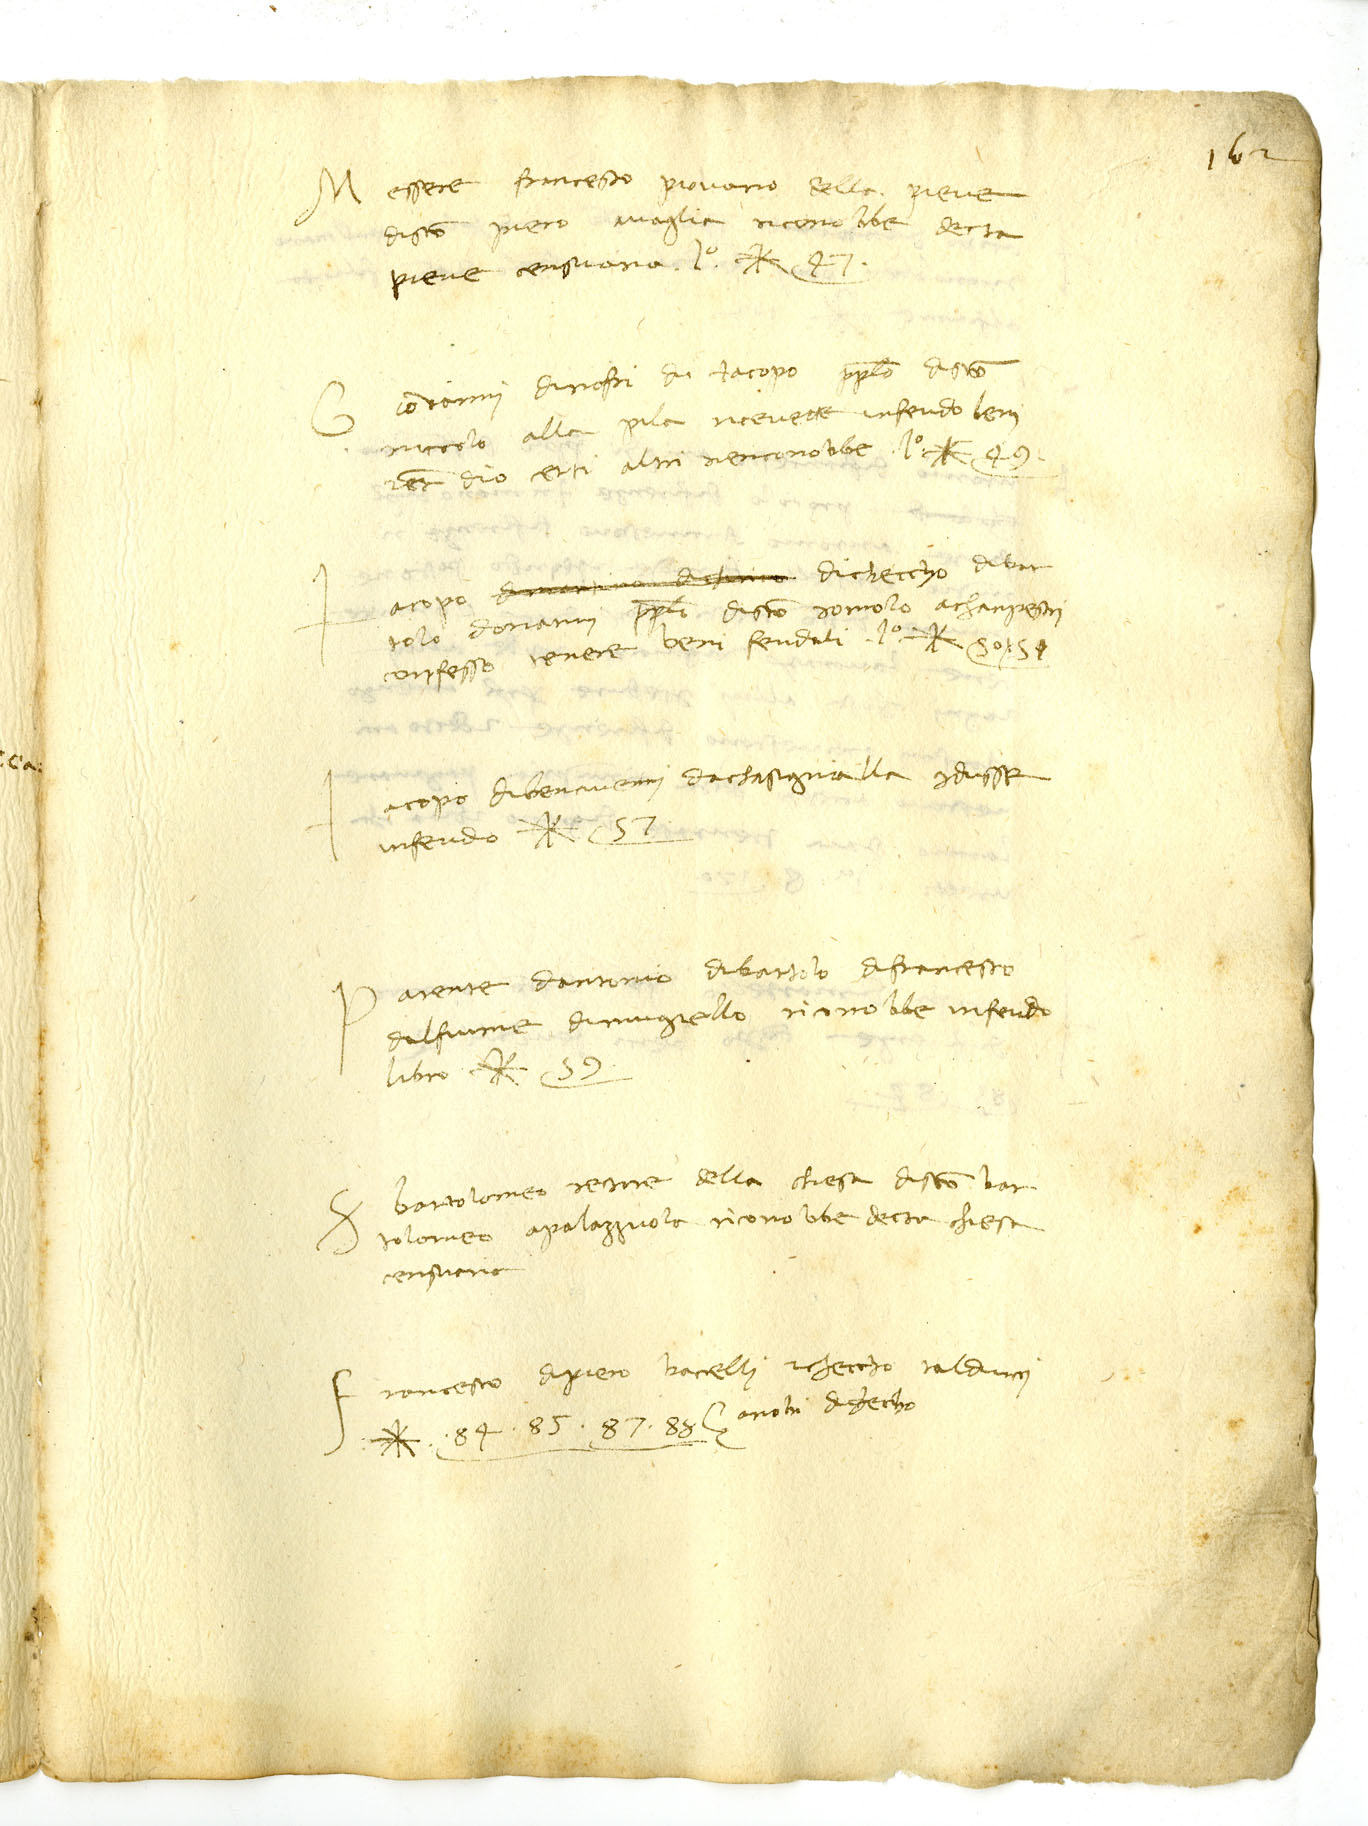 162
Messere francesco piovano della pieve
di sco piero a vaglia riconobbe decta
pieve censuaria. lo. * 47.
Giovanni dinofri di Iacopo pplo disco
niccolo alla pila ricevette infeudo beni
dio certi altri riconobbe. lo * 49.
Iacopo dicheccho dibar
tolo pplo disco romolo a
confesso tenere beni feudali. lo. * 50 51
Iacopo dibenivenni dachasignialla
infeudo * 57
Parente dantonio dibartolo difrancesco
dalfiume dimugiello riconobbe infeudo
libro * 59
S bartolomeo rectore della chiesa disco bar
tolomeo apalazzuolo riconobbe decta chiesa
censuaria
Francesco dipiero baccelli icheccho balducci
* .84.85.87.88